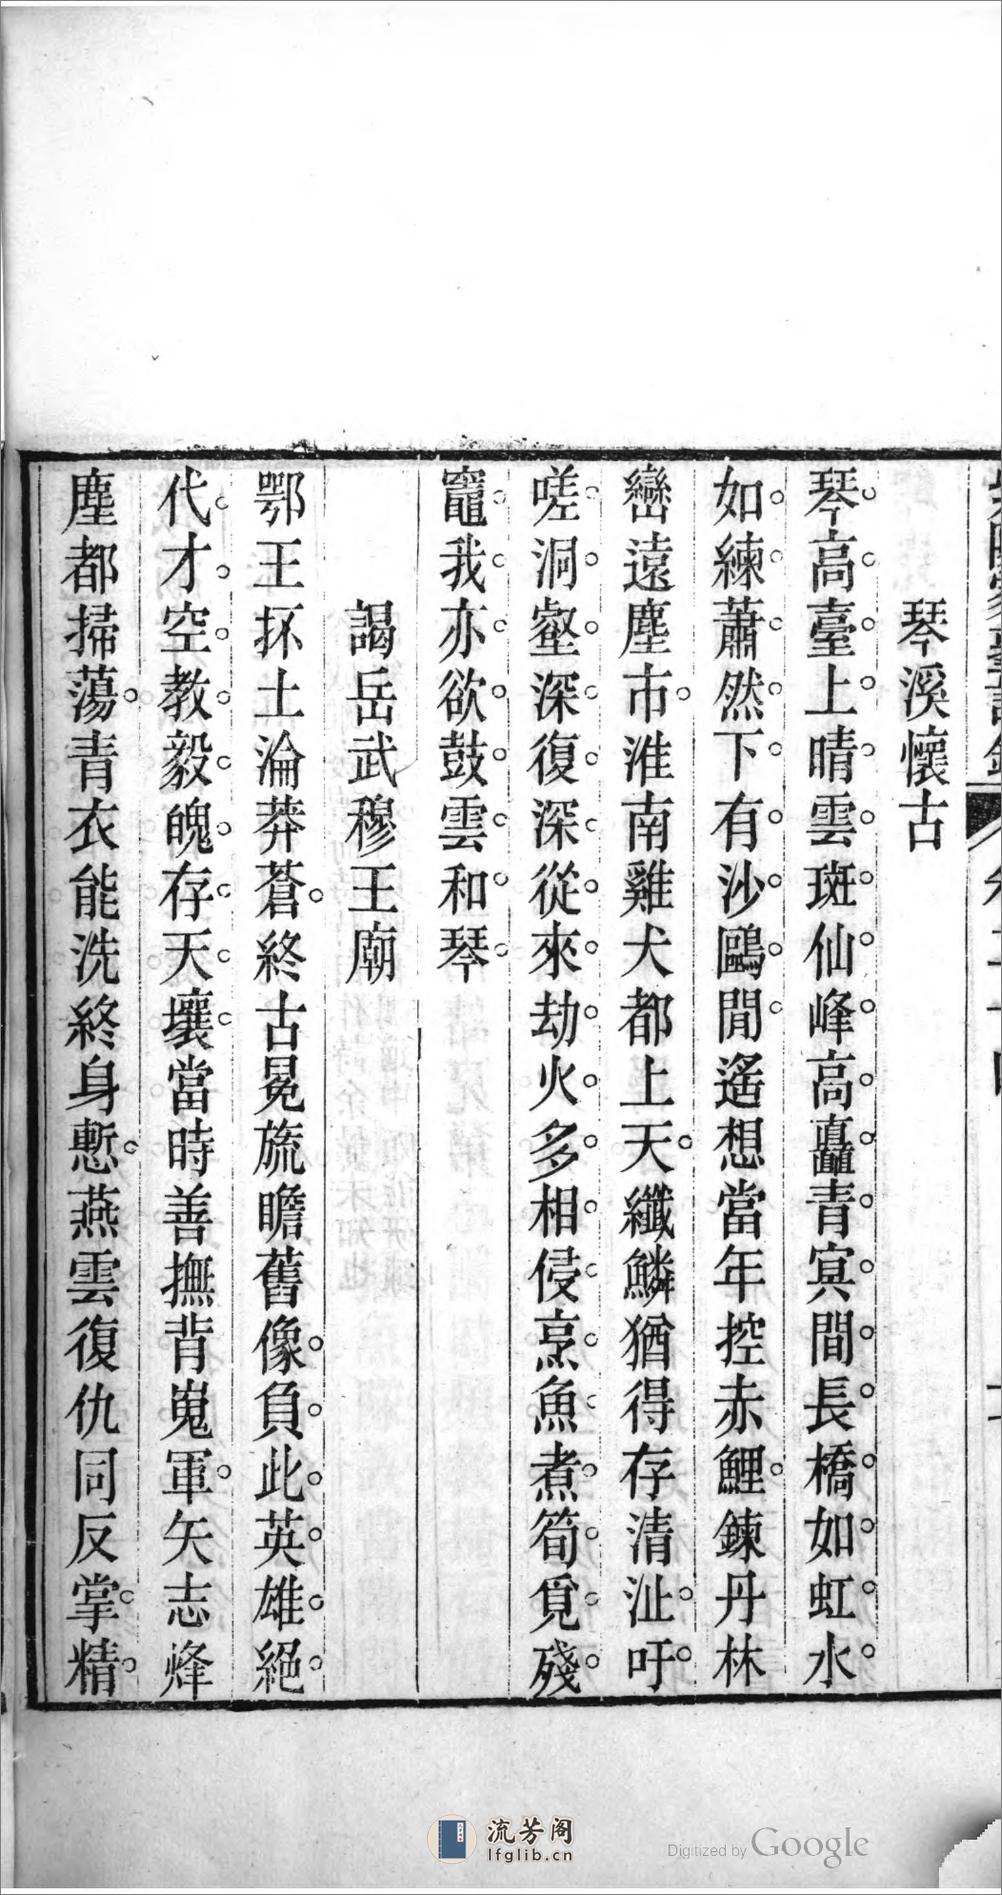 琴溪懷古
琴高臺上晴雲斑仙峰高矗青寘間長橋如虹水
如練蕭然下有沙鷗閒遙想當年控赤鯉鍊丹林
巒遠塵市淮南雞犬都上天纖鱗猶得存清沚吁
嗟洞壑深復深從來劫火多相侵烹魚煮筍覓殘
竈我亦欲鼓雲和琴
謁岳武穆王廟
鄂王抔土淪莽蒼終古冕旒瞻舊像負此英雄絕
代才空教毅魄存天壤當時善撫背嵬軍矢志烽
塵都掃蕩青衣能洗終身慙燕雲復仇同反掌精
流芳阁
lfglib.cn
Digitized by Google